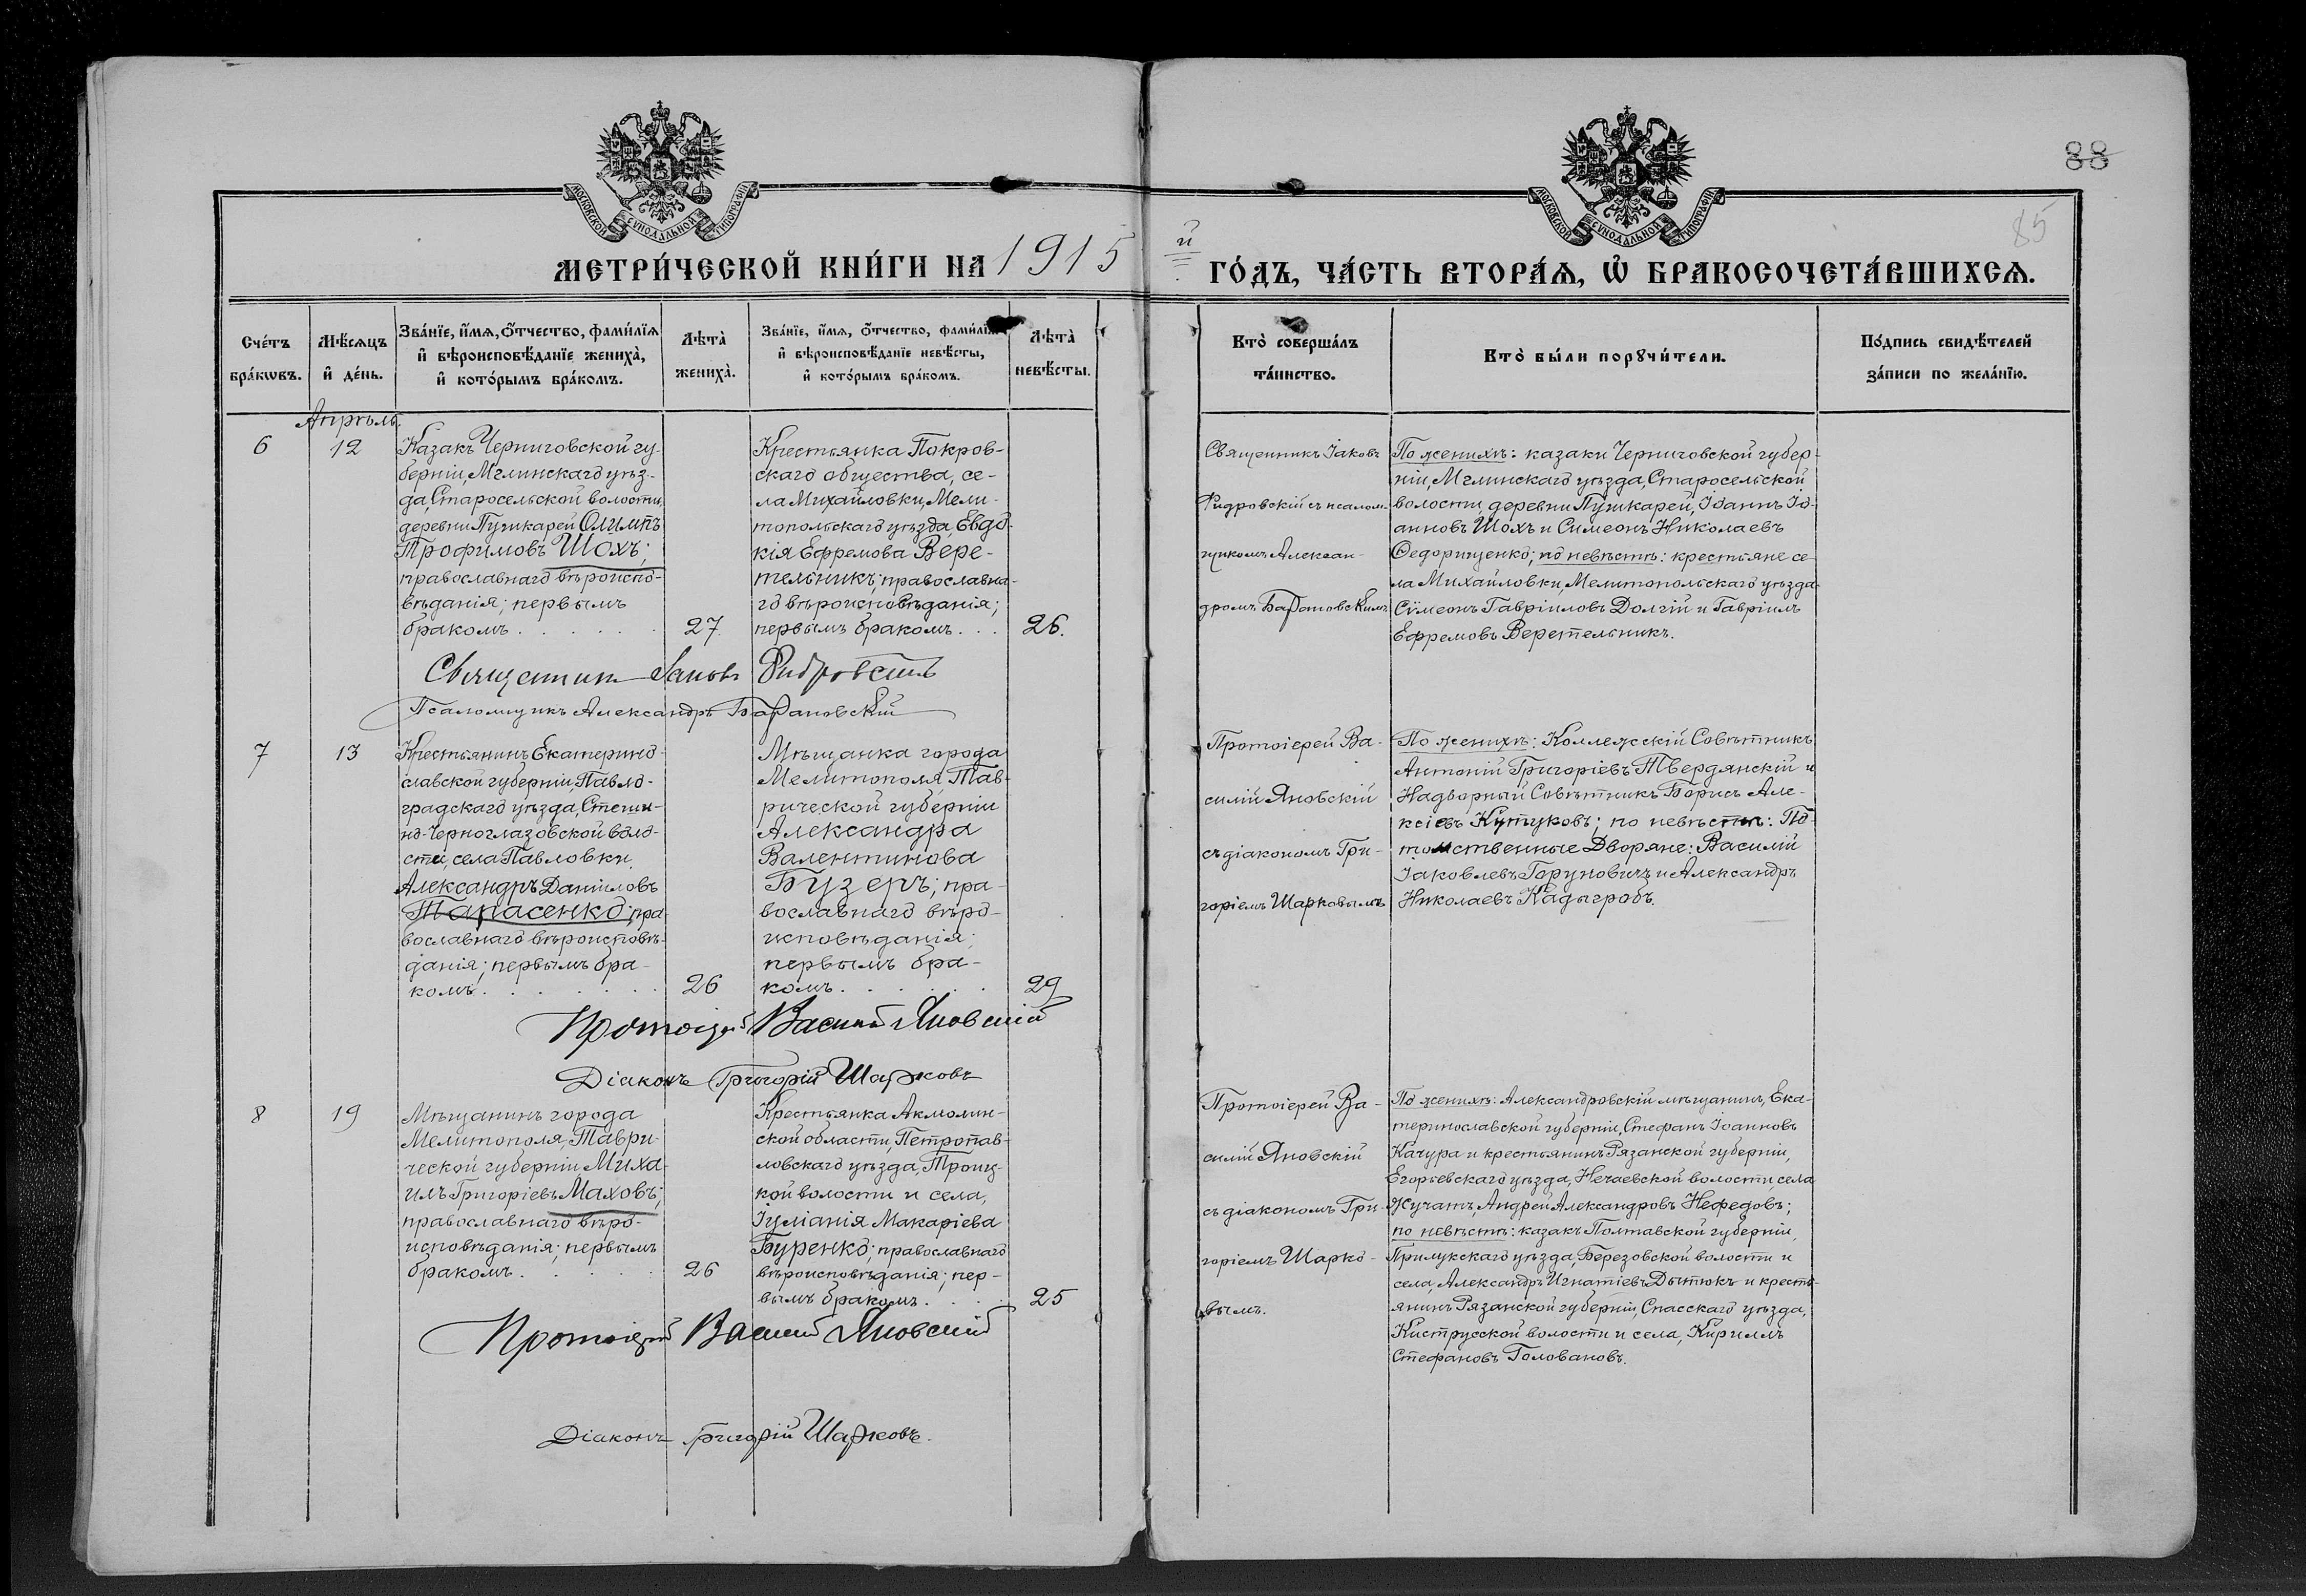 88
85
МОСКОВСКОЙ СѴНОДАЛЬНОЙ ТИПОГРАФІИ
МОСКОВСКОЙ СѴНОДАЛЬНОЙ ТИПОГРАФІИ
МЕТРИ́ЧЕСКОЙ КНИ́ГИ НА 1915 й ГО́ДЪ, ЧА́СТЬ ВТОРА́Ѧ, Ѡ҆ БРАКОСОЧЕТА́ВШИХСѦ.
Сче́тъ
бра́кѡвъ.
Мѣ́сѧцъ
и҆ де́нь.
Зва́нїе, и҆́мѧ, ѻ҆́тчество, фами́лїѧ
и҆ вѣроисповѣ́данїе жениха̀,
и҆ кото́рымъ бра́комъ.
Лѣта̀
жениха̀.
Зва́нїе, и҆́мѧ, ѻ҆́тчество, фами́лїѧ
и҆ вѣроисповѣ́данїе невѣ́сты,
и҆ кото́рымъ бра́комъ.
Лѣта̀
невѣ́сты.
Кто̀ соверша́лъ
та́инство.
Кто̀ бы́ли порꙋчи́тели.
По́дпись свидѣ́телей
за́писи по жела́нїю.
Апрѣль.
6
12
Казакъ Черниговской гу-
берніи, Мглинскаго уѣз-
да, Старосельской волости,
деревни Пушкарей Олимпъ
Трофимовъ Шохъ;
православнаго вѣроиспо-
вѣданія; первымъ
бракомъ . . . . . .
27.
Крестьянка Покров-
скаго общества, се-
ла Михайловки, Мели-
топольскаго уѣзда, Евдо-
кія Ефремова Вере-
тельникъ; православна-
го вѣроисповѣданія;
первымъ бракомъ . . .
26.
Священникъ Іаковъ
Фидровскій съ псалом-
щикомъ Алексан-
дромъ Барановскимъ
По женихѣ: казаки Черниговской губер-
ніи, Мглинскаго уѣзда, Старосельской
волости, деревни Пушкарей, Іоаннъ Іо-
анновъ Шохъ и Симеонъ Николаевъ
Ѳедорищенко; по невѣстѣ: крестьяне се-
ла Михайловки, Мелитопольскаго уѣзда
Сѵмеонъ Гавріиловъ Долгій и Гавріилъ
Ефремовъ Веретельникъ.
Священникъ Іаковъ Фидровскій
Псаломщикъ Александръ Барановскій
7
13
Крестьянинъ Екатерино-
славской губерніи, Павло-
градскаго уѣзда, Стеши-
но-Черноглазовской воло-
сти, села Павловки,
Александръ Даніиловъ
Тарасенко; пра-
вославнаго вѣроисповѣ-
данія; первымъ бра-
комъ . . . . . . .
26
Мѣщанка города
Мелитополя, Тав-
рической губерніи
Александра
Валентинова
Бузеръ; пра-
вославнаго вѣро-
исповѣданія;
первымъ бра-
комъ . . . . . .
29
Протоіерей Ва-
силій Яновскій
съ діакономъ Гри-
горіемъ Шарковымъ
По женихѣ: Коллежскій Совѣтникъ
Антоній Григоріевъ Твердянскій и
Надворный Совѣтникъ Борисъ Але-
ксіевъ Кутуковъ; по невѣстѣ: По-
томственные Дворяне: Василій
Іаковлевъ Горуновичъ и Александръ
Николаевъ Кадыгробъ.
Протоіерей Василій Яновскій
Діаконъ Григорій Шарковъ
8
19
Мѣщанинъ города
Мелитополя, Таври-
ческой губерніи Миха-
илъ Григоріевъ Маховъ;
православнаго вѣро-
исповѣданія; первымъ
бракомъ . . . . .
26
Крестьянка Акмолин-
ской области, Петропав-
ловскаго уѣзда, Троиц-
кой волости и села,
Іуліанія Макаріева
Буренко; православнаго
вѣроисповѣданія; пер-
вымъ бракомъ . . . .
25
Протоіерей Ва-
силій Яновскій
съ діакономъ Гри-
горіемъ Шарко-
вымъ.
По женихѣ: Александровскій мѣщанинъ, Ека-
теринославской губерніи, Стефанъ Іоанновъ
Качура и крестьянинъ Рязанской губерніи,
Егорьевскаго уѣзда, Нечаевской волости, села
Жучатъ, Андрей Александровъ Нефедовъ;
по невѣстѣ: казакъ Полтавской губерніи,
Прилукскаго уѣзда, Березовской волости и
села, Александръ Игнатіевъ Дытюкъ и кресть-
янинъ Рязанской губерніи, Спасскаго уѣзда,
Киструсской волости и села, Кириллъ
Стефановъ Головановъ.
Протоіерей Василій Яновскій
Діаконъ Григорій Шарковъ.